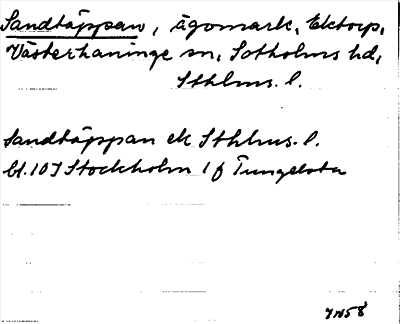 Sandtäppan, ägomark, Ektorp,
Västerhaninge sn, Sotholms hd,
Sthlms. l.
Sandtäppan ek Sthlms. l.
bl. 10J Stockholm 1 f Tungelsta